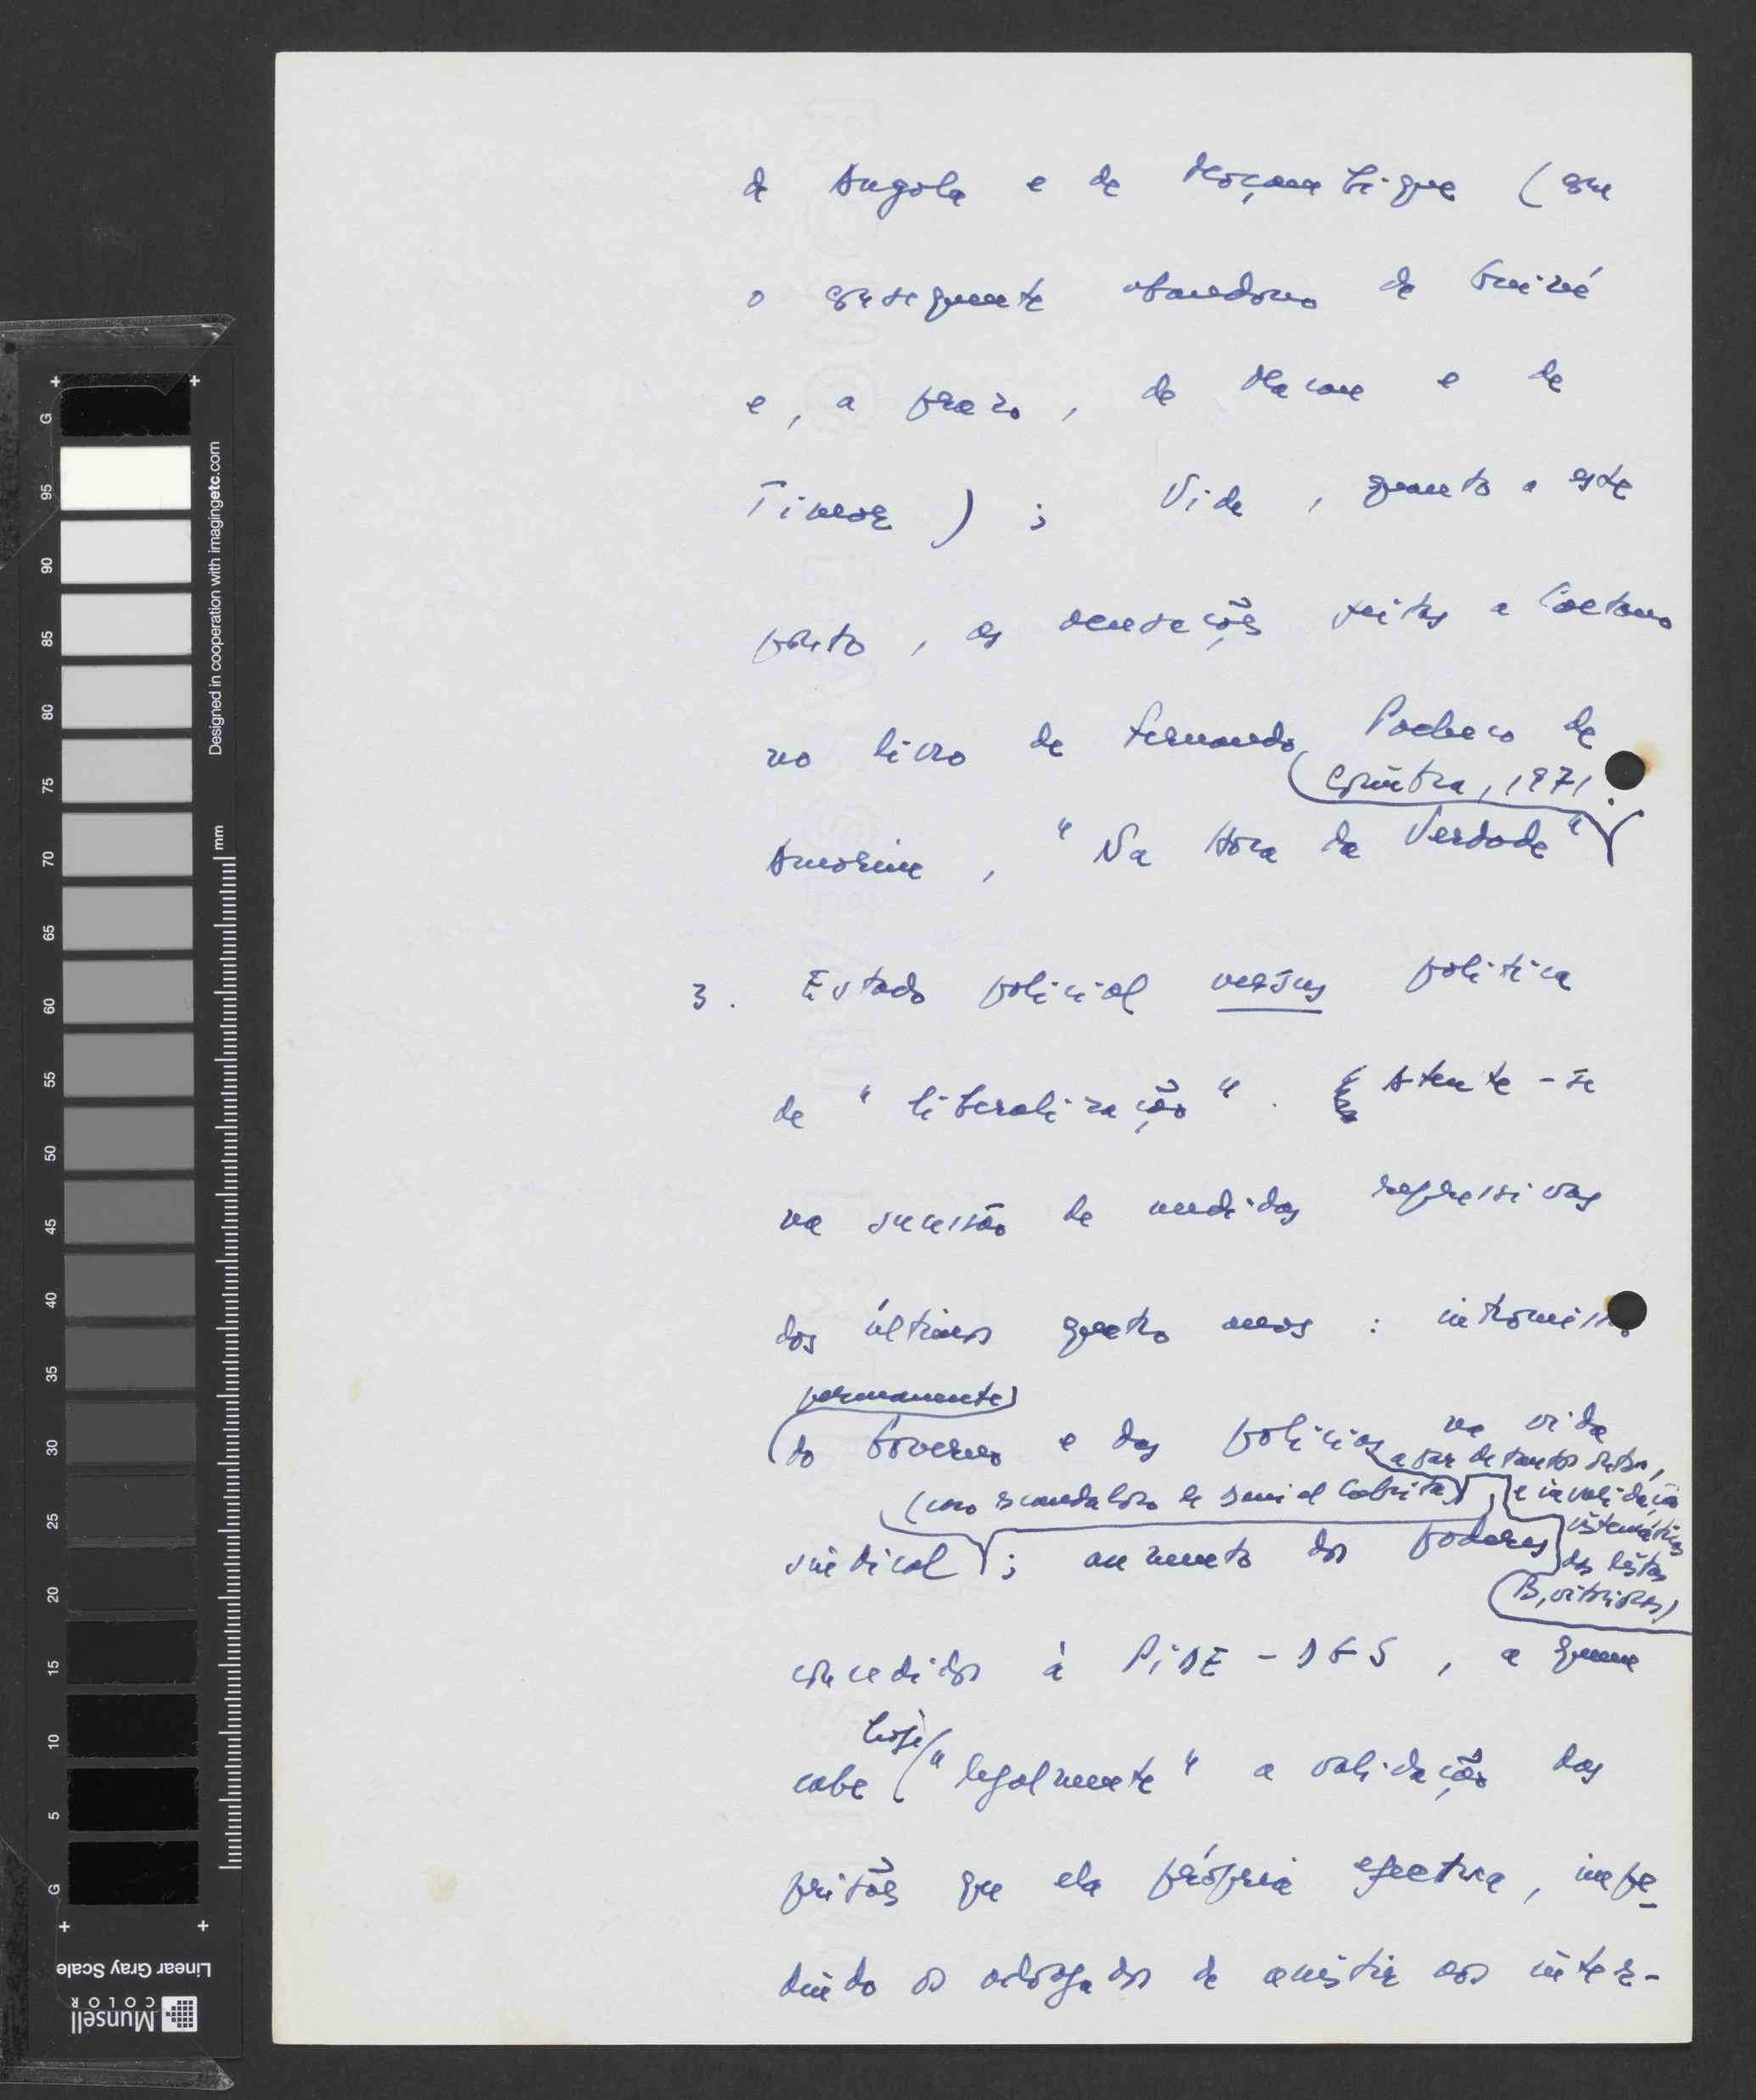 de Angola e de Moçambique (com
o consequente abandono da Guiné
e, a prazo, de Macau e de
Timor); Vide, quanto a este
ponto, as acusações feitas a Caetano
no livro de Fernando Pacheco de
Coimbra, 1971.
Amorim, "Na Hora da Verdade"
3. Estado policial versus política
de "liberalização". Atente-se
na sucessão de medidas repressivas
dos últimos quatro anos:
permanente
do Governo e das polícias na vida
a par de tantos outros,
(caso escandaloso de Daniel Cabrita), e invalidação
sistemática
sindical; aumento dos poderes
das listas
B, vitoriosas)
concedidos à PIDE-DGS, a quem
hoje
cabe "legalmente" a validação das
prisões que ela própria efectua, impe-
dindo os advogados de assistir aos inter-
G
95
90
85
80
75
70
65
60
55
50
45
40
35
30
25
20
15
10
5
G
mm
Designed in cooperation with imagingetc.com
Linear Gray Scale
Munsell
COLOR